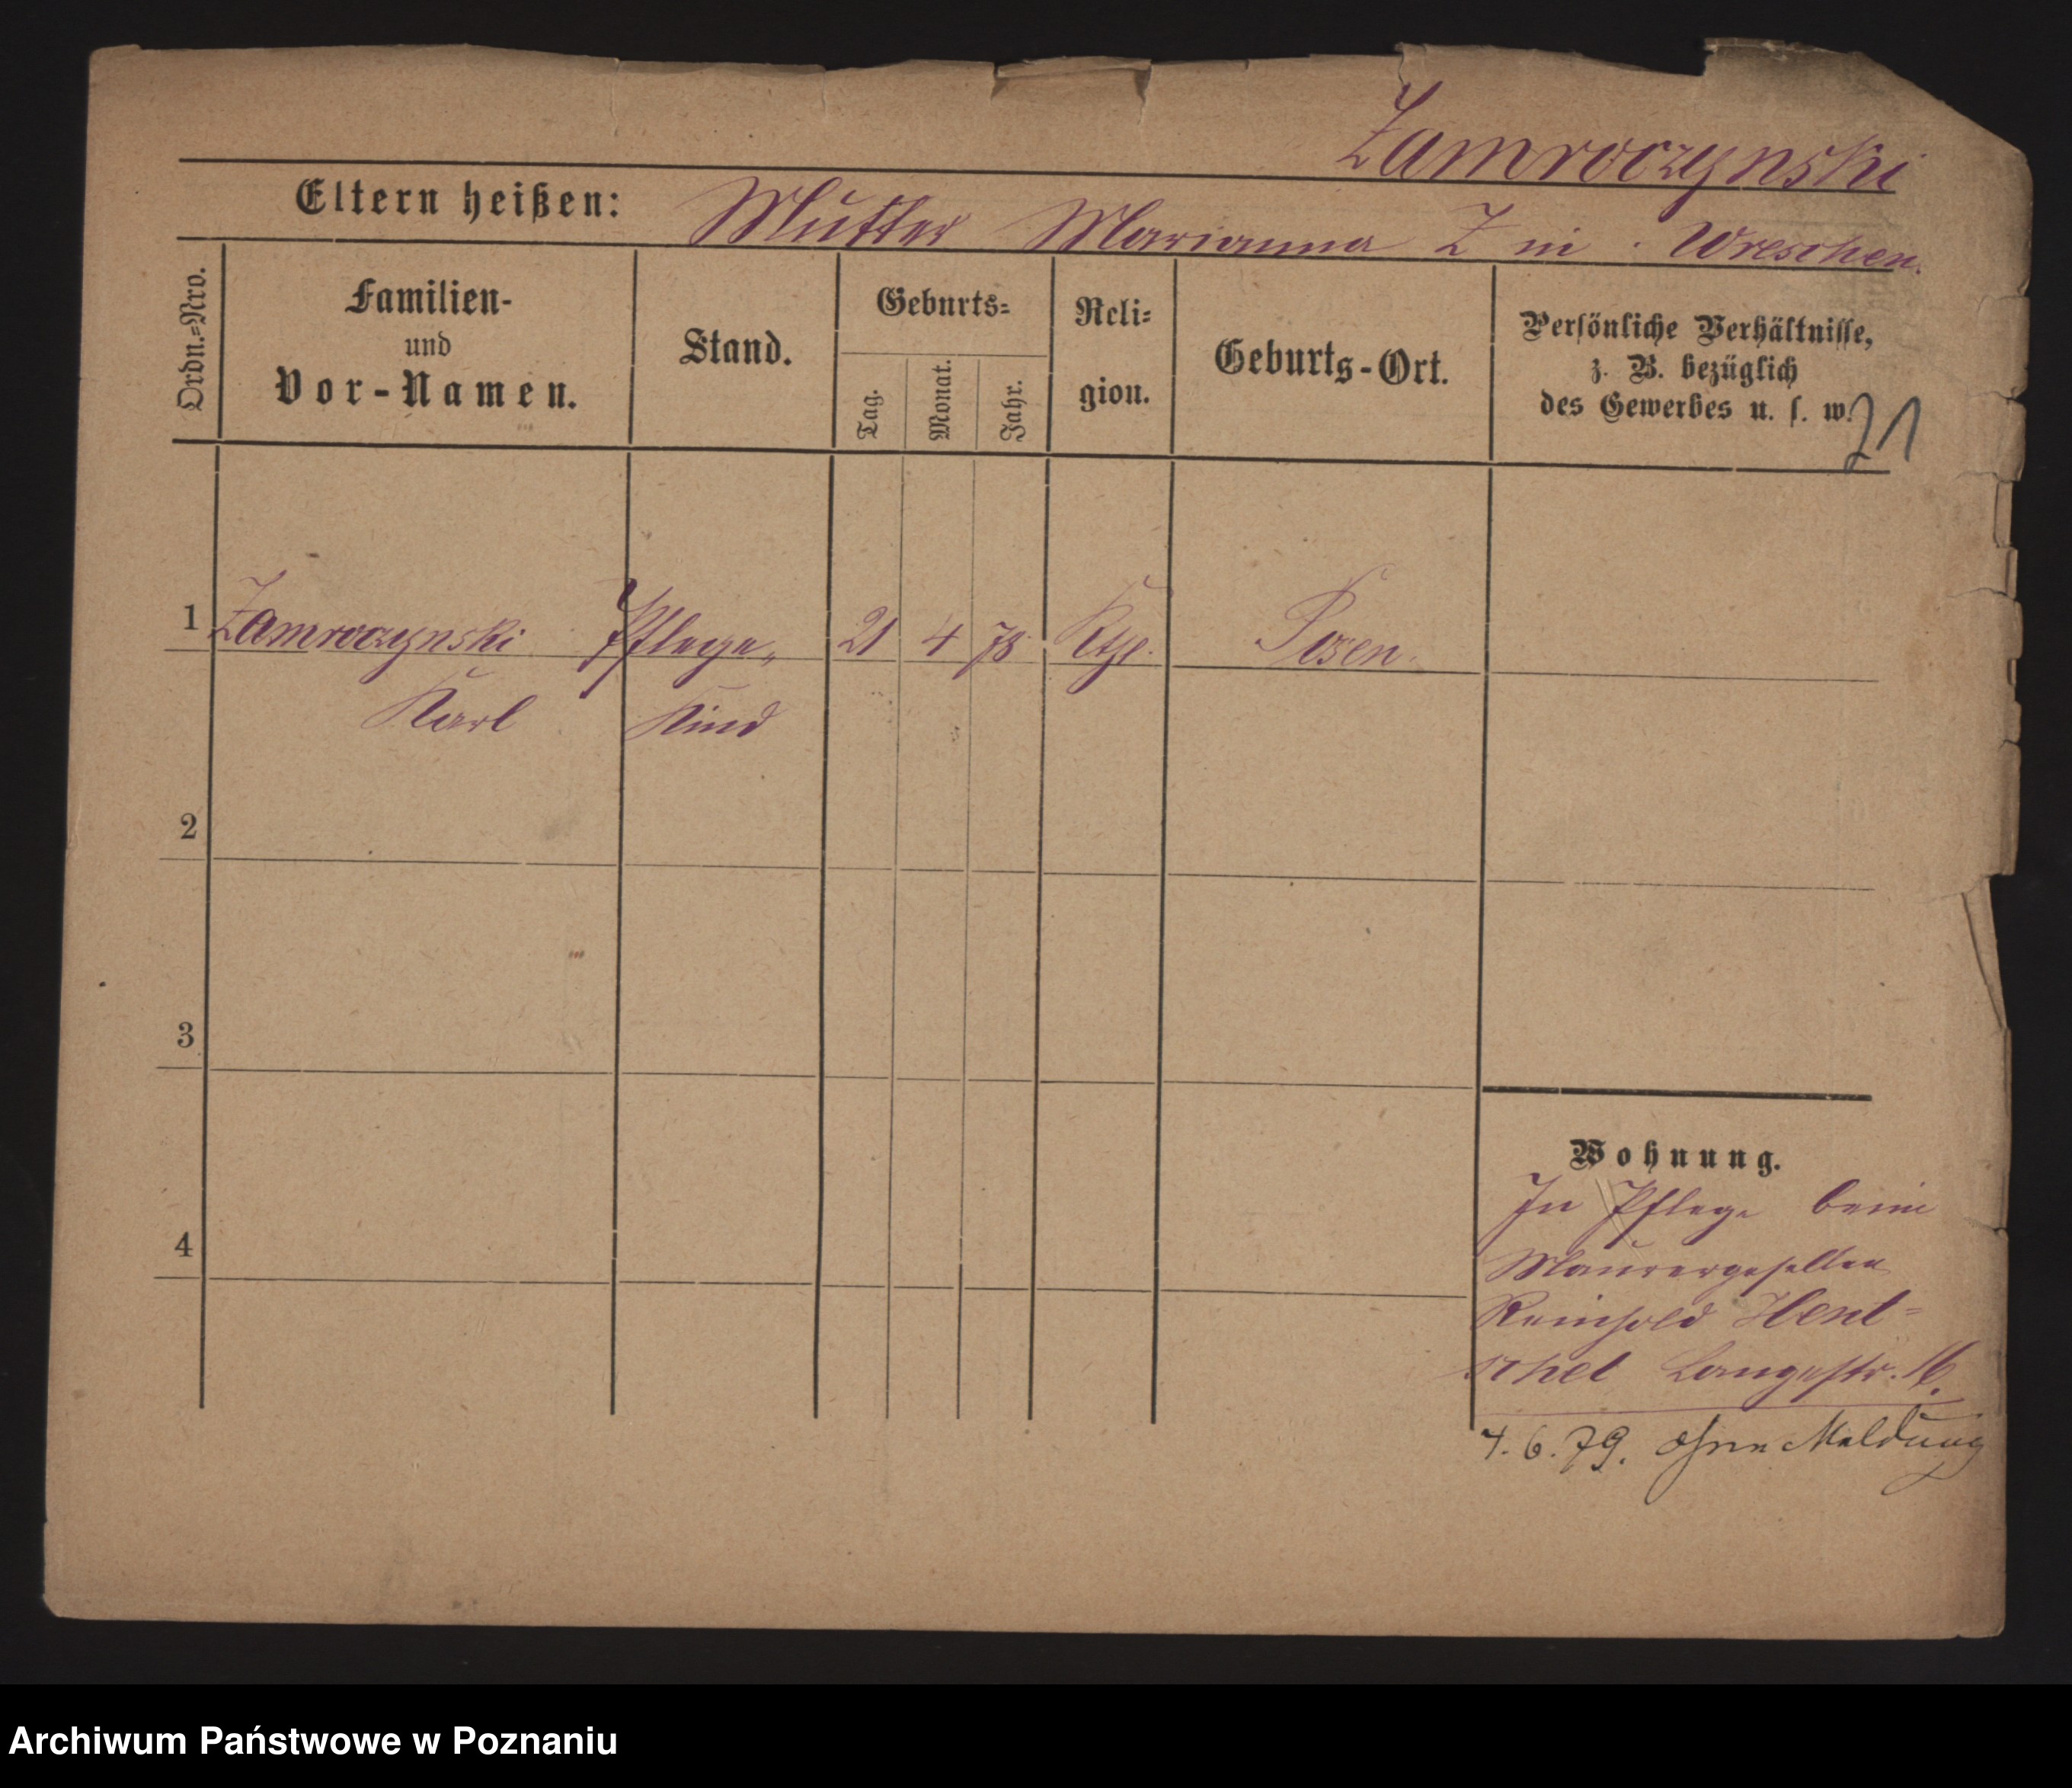 Zamroczynski
Eltern heißen: Mutter Marianna Z in Wreschen.
Ordn.=Nro.
Familien-
und
Vor-Namen.
Stand.
Geburts=
Tag.
Monat.
Jahr.
Reli=
gion.
Geburts-Ort.
Persönliche Verhältnisse,
z. B. bezüglich
des Gewerbes u. s. w.
21
1 Zamroczynski Pflege„ 21 4 78 Kth. Posen.
Karl Kind
2
3
4
Wohnung.
In Pflege beim
Maurergesellen
Reinhold Hent=
schel Langestr. 16.
4. 6. 79. ohne Meldung
Archiwum Państwowe w Poznaniu